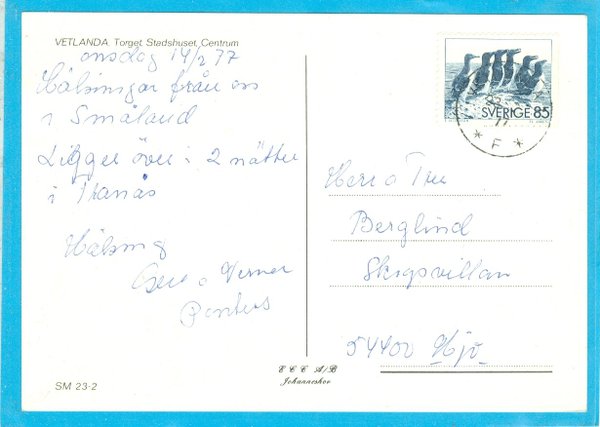 VETLANDA. Torget, Stadshuset, Centrum
onsdag 14/2 77
Hälsningar från oss
i Småland
Ligger över i 2 nätter
i Tranås
Hälsning
o Verner
SVERIGE 85
77
* F *
Herr o Fru
Berglind
Skogsvillan
54400 Hjo
E C C A/B
Johanneshov
SM 23-2